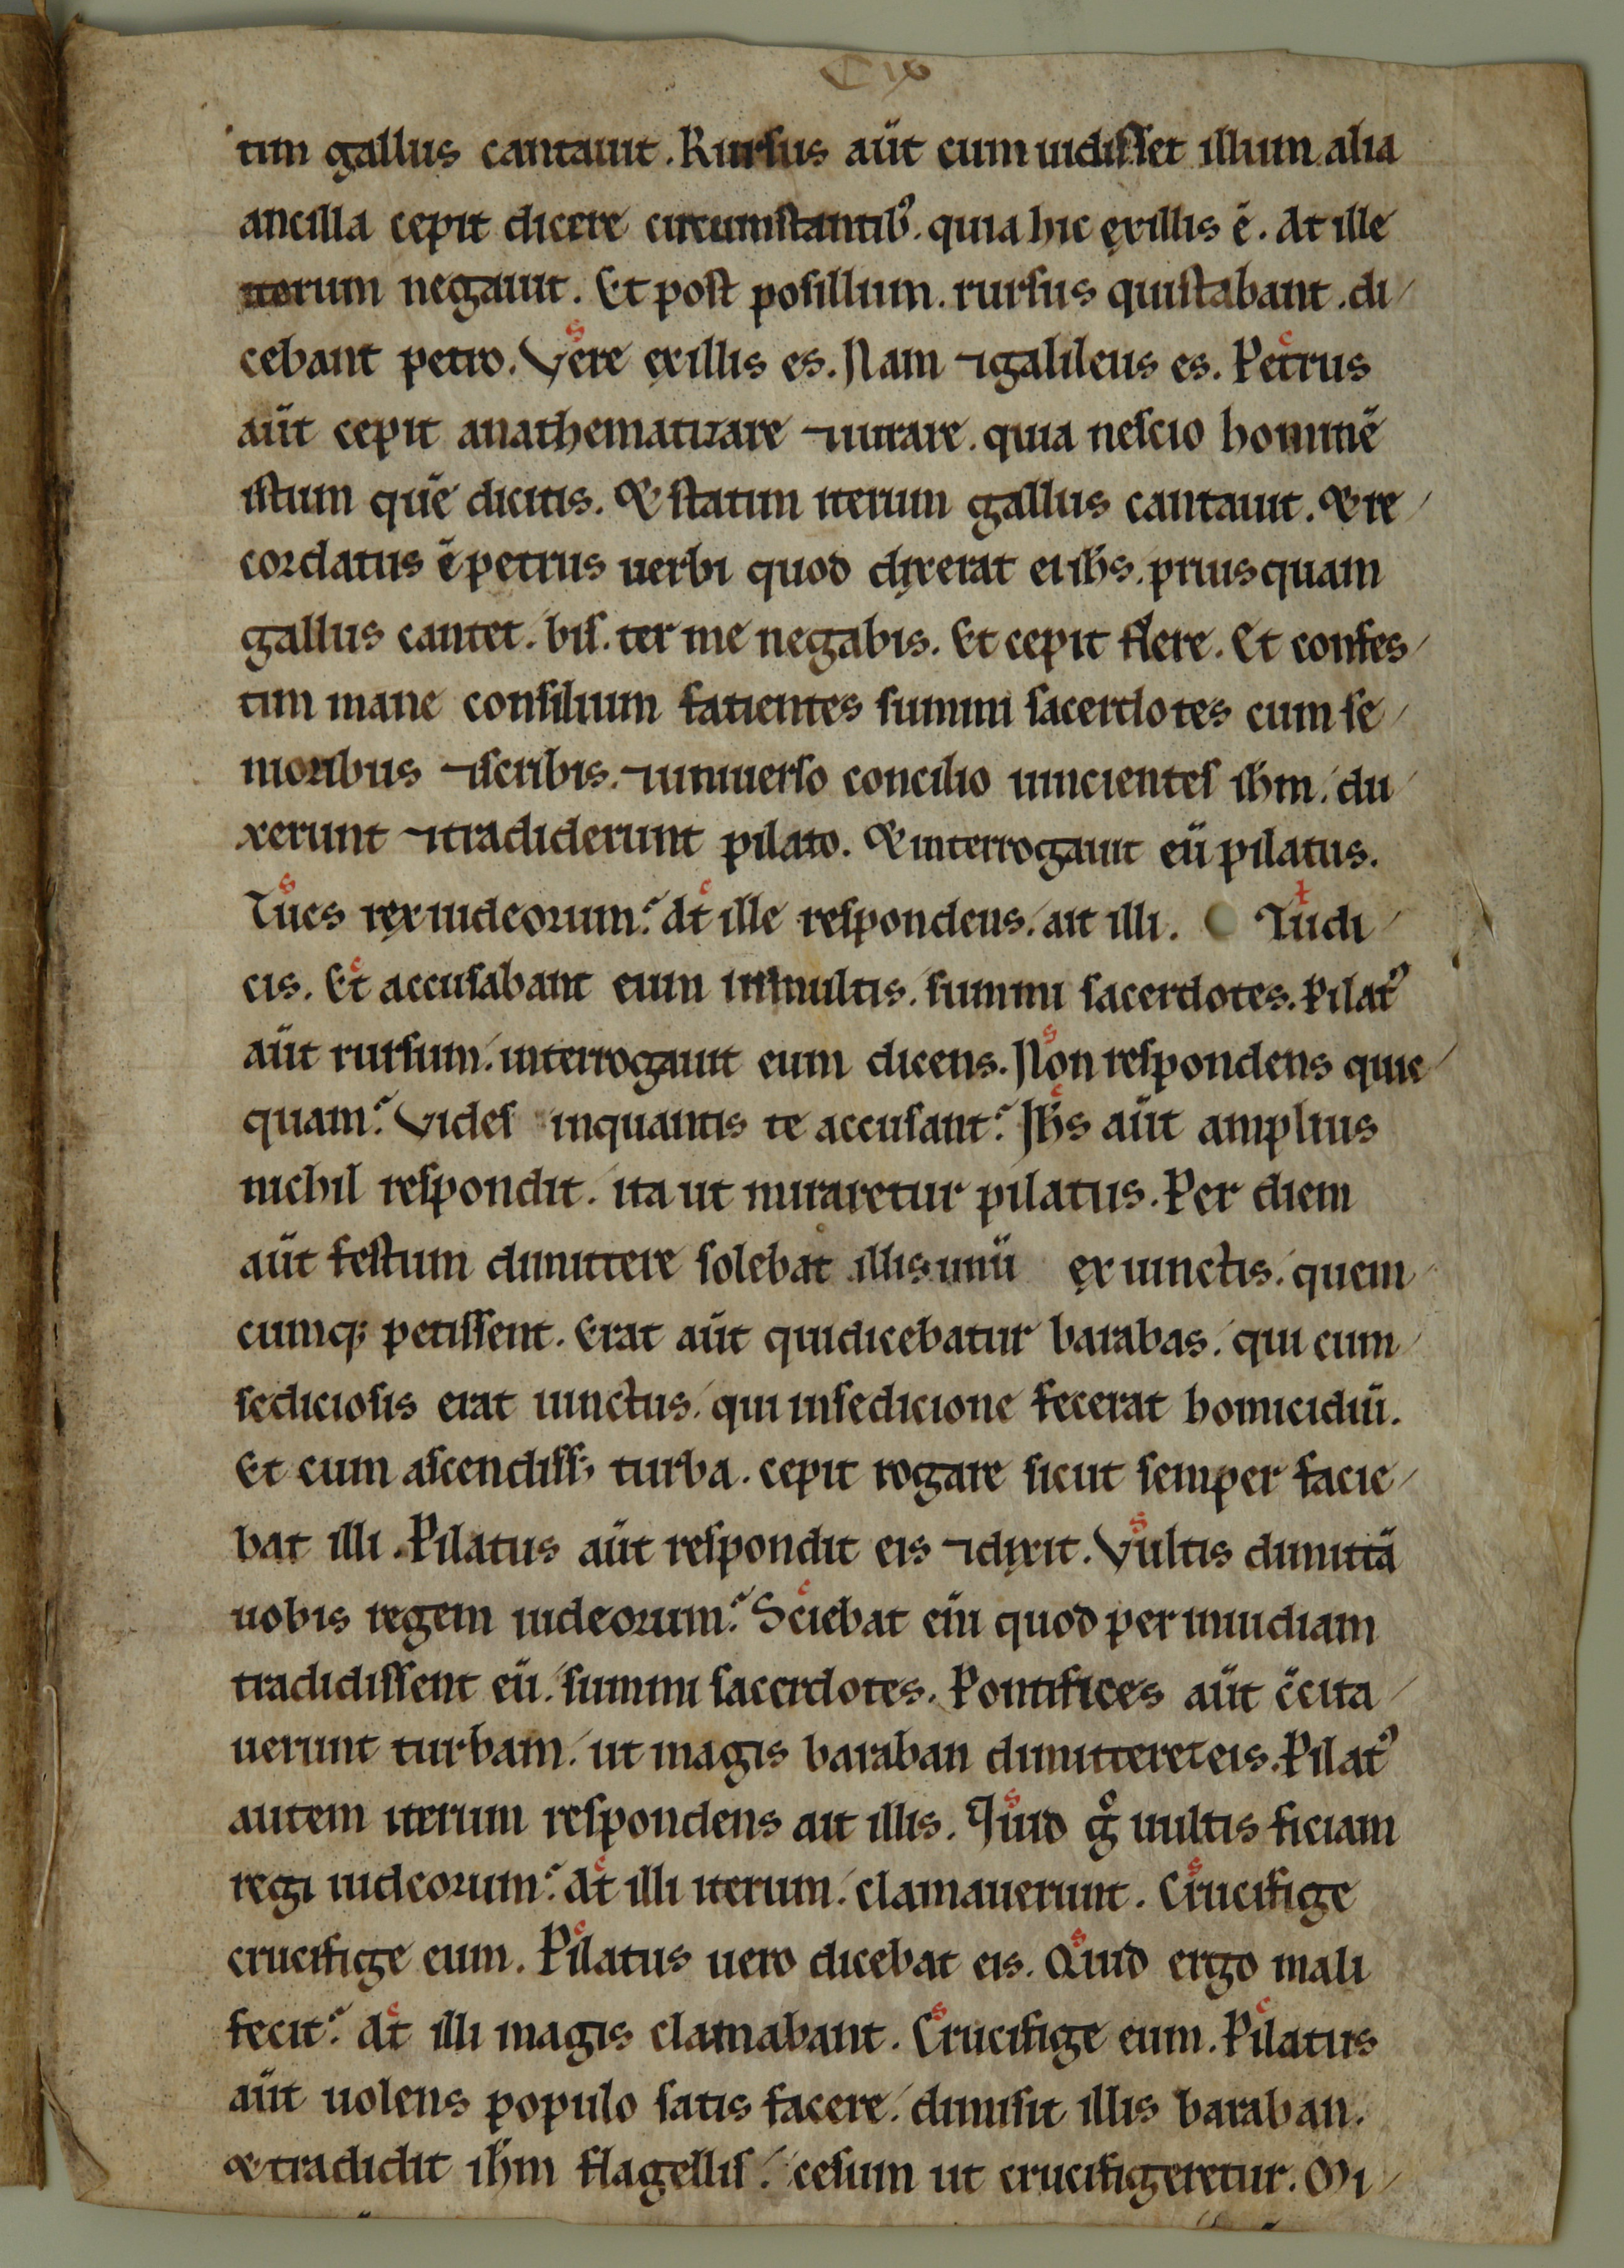 C ix
tim gallus cantauit. Rursus aūt cum uidisset illum alia
ancilla cepit dicere circumstantibꝰ. quia hic exillis ē. At ille
iterum negauit. Et post posillum. rursus quistabant. di
cebant petro. Vere exillis es. Nam ⁊galileus es. Petrus
aūt cepit anathematizare ⁊iurare. quia nescio hominē
istum quē dicitis. & statim iterum gallus cantauit. & re
cordatus ē petrus uerbi quod dixerat ei ihs. priusquam
gallus cantet. bis. ter me negabis. Et cepit flere. Et confes
tim mane consilium fatientes summi sacerdotes cum se
nioribus ⁊scribis. ⁊uniuerso concilio uincientes ihm. du
xerunt ⁊tradiderunt pilato. & interrogauit eū pilatus.
Tues rex iudeorum? At ille respondens. ait illi. Tudi
cis. Et accusabant eum inmultis. summi sacerdotes. Pilatꝰ
aūt rursum. interrogauit eum dicens. Non respondens quic
quam? Vides inquantis te accusant? Ihs aūt amplius
nichil respondit. ita ut miraretur pilatus. Per diem
aūt festum dimittere solebat illis unū ex uinctis. quem
cumq; petissent. Erat aūt quidicebatur barabas. qui cum
sediciosis erat uinctus. qui insedicione fecerat homicidiū.
Et cum ascendiss; turba. cepit rogare sicut semper facie
bat illi. Pilatus aūt respondit eis ⁊dixit. Vultis dimittā
uobis regem iudeorum? Sciebat eni quod per inuidiam
tradidissent eū. summi sacerdotes. Pontifices aūt c̄cita
uerunt turbam. ut magis baraban dimitteret eis. Pilatꝰ
autem iterum respondens ait illis. Quid gͦ uultis ficiam
regi iudeorum? At illi iterum. clamauerunt. Crucifige
crucifige eum. Pilatus uero dicebat eis. Quid ergo mali
fecit? At illi magis clamabant. Crucifige eum. Pilatus
aūt uolens populo satis facere. dimisit illis baraban.
& tradidit ihm flagellis. cesum ut crucifigeretur. Mi